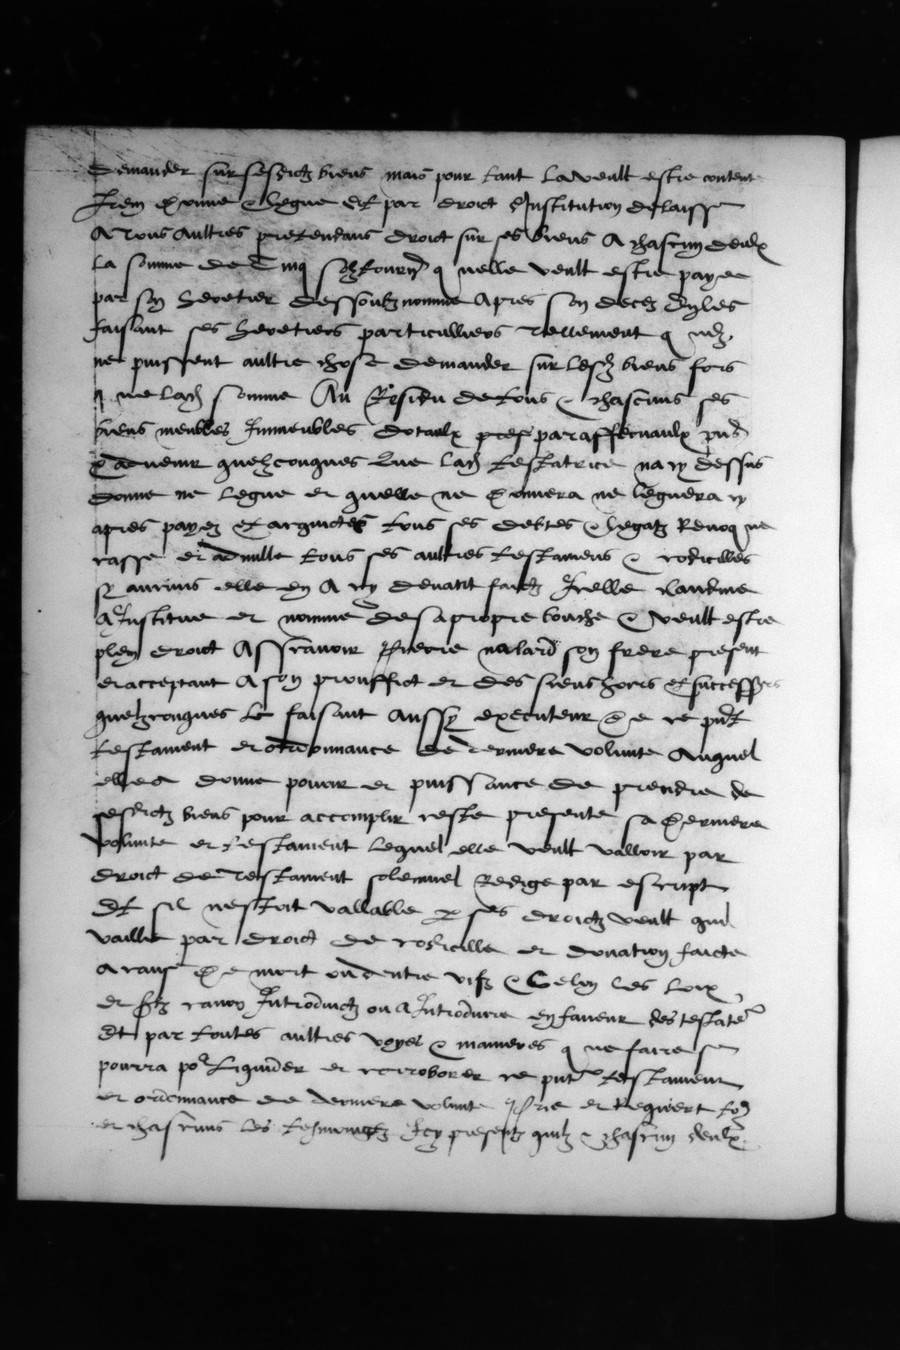 demander sur sesdictz biens mais pour tant la veult estre contente
Item donne & legue Et par droict d'Institution delaisse
A tous aultres pretendans droict sur ses biens A chascun deulx
la somme de Cinq solz tourn q velle veult estre payee
par son heretier dessoubz nomme Apres son deces Et les
faisant ses heretiers particulliers tellement q
ne puissent aultre chose demander sur lesd biens fors
q ne lad somme Au Residu de tous & chascuns ses
biens meubles Immeubles dotaulx paraffernaulx pns
& advenir quelzconques Que lad testatrice na cy dessus
donne ne legue et quelle ne donnera ne leguera cy
apres payez et acquictes tous ses debtes & legatz Revoq ne
casse et adnulle tous ses aultres testamens & codicilles
sy aucuns elle en A cy devant faictz Icelle Claudine
A Institue et nomme de sa propre bouche & veult estre
plein droict Assavoir Pierre nalard son frere present
et acceptant A son prouffict et des siens hoirs et successeurs
quelzconques le faisant Aussy executeur de ce pnt
testament et ordonnance de derniere volunte Auquel
elle a donne povoir et puissance de prendre de
sesdictz biens pour accomplir ceste presente sa derniere
volunte et testament lequel elle veult valloir par
droict de testament solemnel Redige par escript
Et sil nestoit vallable par ses droictz veult quil
vaille par droict de codicille et donation faicte
A caus de mort ou dentre vifz & Selon les loix
et canon Introductz ou A Introducre en faveur des testate
Et par toutes aultres voyes & manieres q ne faire se
pourra por Liquider et corroborer ce pnt testament
et ordonnance de derniere volunte Prie et Requiert to
et chascuns les tesmoingtz Icy presentz quilz & chascun deulx